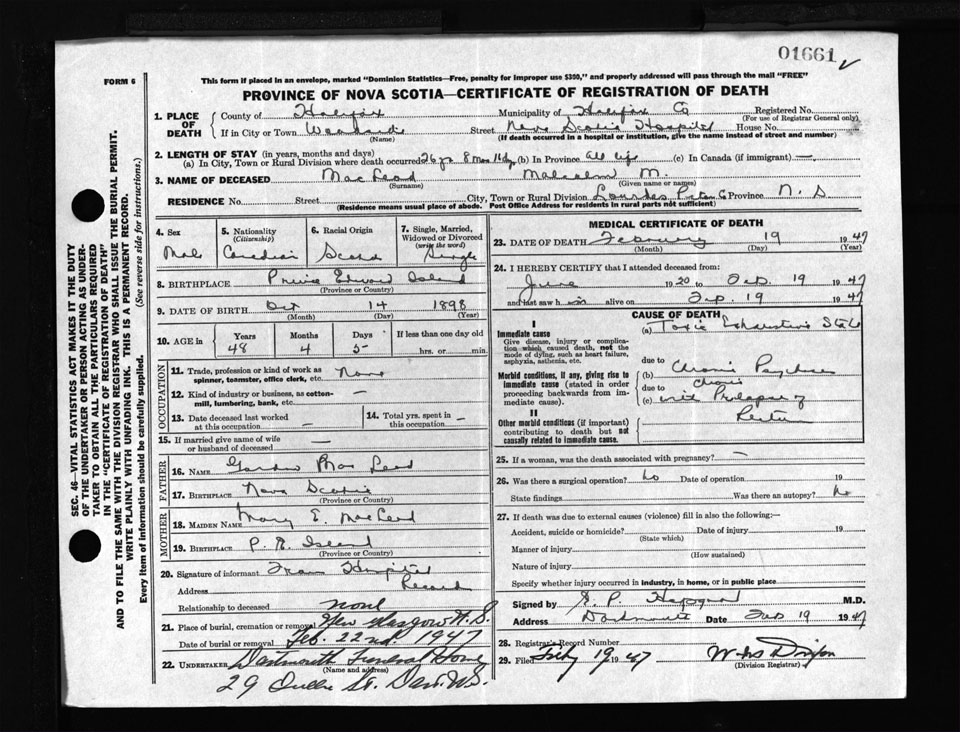 01661
FORM 6
This form if placed in an envelope, marked "Dominion Statistics—Free, penalty for improper use $300," and properly addressed will pass through the mail "FREE"
PROVINCE OF NOVA SCOTIA—CERTIFICATE OF REGISTRATION OF DEATH
SEC. 46—VITAL STATISTICS ACT MAKES IT THE DUTY
OF THE UNDERTAKER OR PERSON ACTING AS UNDER-
TAKER TO OBTAIN ALL THE PARTICULARS REQUIRED
IN THE "CERTIFICATE OF REGISTRATION OF DEATH"
AND TO FILE THE SAME WITH THE DIVISION REGISTRAR WHO SHALL ISSUE THE BURIAL PERMIT.
WRITE PLAINLY WITH UNFADING INK. THIS IS A PERMANENT RECORD.
Every item of Information should be carefully supplied. (See reverse side for instructions.)
1. PLACE OF DEATH
County of Halifax Municipality of Halifax Co Registered No.
(For use of Registrar General only)
If in City or Town Street Nova Scotia Hospital House No.
(Name) (If death occurred in a hospital or institution, give the name instead of street and number)
2. LENGTH OF STAY (in years, months and days)
(a) In City, Town or Rural Division where death occurred 26 yr 8 mos (b) In Province All life (c) In Canada (if immigrant) —
3. NAME OF DECEASED MacLeod Malcolm M.
(Surname) (Given name or names)
RESIDENCE No. Street City, Town or Rural Division Lourdes Pictou Co Province N. S
(Residence means usual place of abode. Post Office Address for residents in rural parts not sufficient)
4. Sex
Male
5. Nationality
(Citizenship)
Canadian
6. Racial Origin
Scotch
7. Single, Married,
Widowed or Divorced
(write the word)
Single
8. BIRTHPLACE Prince Edward Island
(Province or Country)
9. DATE OF BIRTH Oct 14 1898
(Month) (Day) (Year)
10. AGE in
Years Months Days If less than one day
48 4 5 hrs. or min.
OCCUPATION
11. Trade, profession or kind of work as
spinner, teamster, office clerk, etc. None
12. Kind of industry or business, as cotton-
mill, lumbering, bank, etc. —
13. Date deceased last worked
at this occupation —
14. Total yrs. spent in
this occupation —
15. If married give name of wife
or husband of deceased —
FATHER
16. NAME Mac Leod
17. BIRTHPLACE Nova Scotia
(Province or Country)
MOTHER
18. MAIDEN NAME Mary E. MacLeod
19. BIRTHPLACE P. E. Island
(Province or Country)
20. Signature of informant From Hospital
Record
Address
Relationship to deceased none
21. Place of burial, cremation or removal New Glasgow N.S.
Date of burial or removal Feb. 22nd. 1947
22. UNDERTAKER Dartmouth Funeral Home
(Name and address)
29 St. Dart. N.S.
MEDICAL CERTIFICATE OF DEATH
23. DATE OF DEATH February 19 1947
(Month) (Day) (Year)
24. I HEREBY CERTIFY that I attended deceased from:
June 1920 to Feb. 19 1947
and last saw him alive on Feb. 19 1947
CAUSE OF DEATH
I
Immediate cause
Give disease, injury or complica-
tion which caused death, not the
mode of dying, such as heart failure,
asphyxia, asthenia, etc.
Morbid conditions, if any, giving rise to
immediate cause (stated in order
proceeding backwards from im-
mediate cause).
II
Other morbid conditions (if important)
contributing to death but not
causally related to immediate cause.
(a) Toxic Exhaustive State
due to
(b) Chronic Psychosis
due to Chronic
(c) with Prolapse of
Rectum
25. If a woman, was the death associated with pregnancy? —
26. Was there a surgical operation? No Date of operation 19
State findings Was there an autopsy? No
27. If death was due to external causes (violence) fill in also the following:—
Accident, suicide or homicide? Date of injury 19
(State which)
Manner of injury
(How sustained)
Nature of injury
Specify whether injury occurred in industry, in home, or in public place
Signed by M.D.
Address Dartmouth Date Feb 19 1947
28. Registrar's Record Number
29. Filed Feby 19 1947
(Division Registrar)